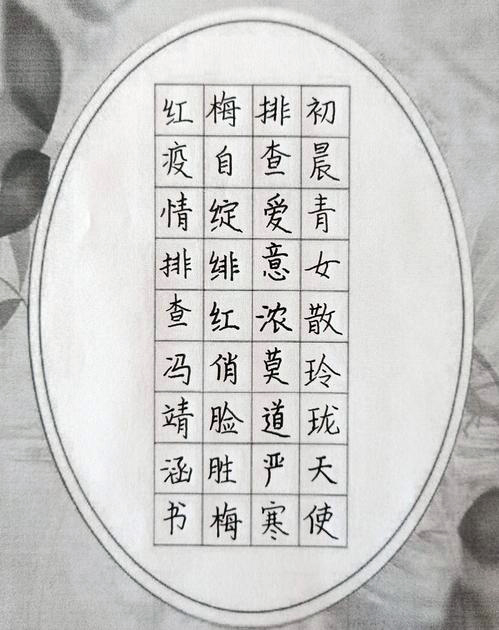 初晨青女散玲珑天使
排查爱意浓莫道严寒
梅自绽绯红俏脸胜梅
红疫情排查冯靖涵书